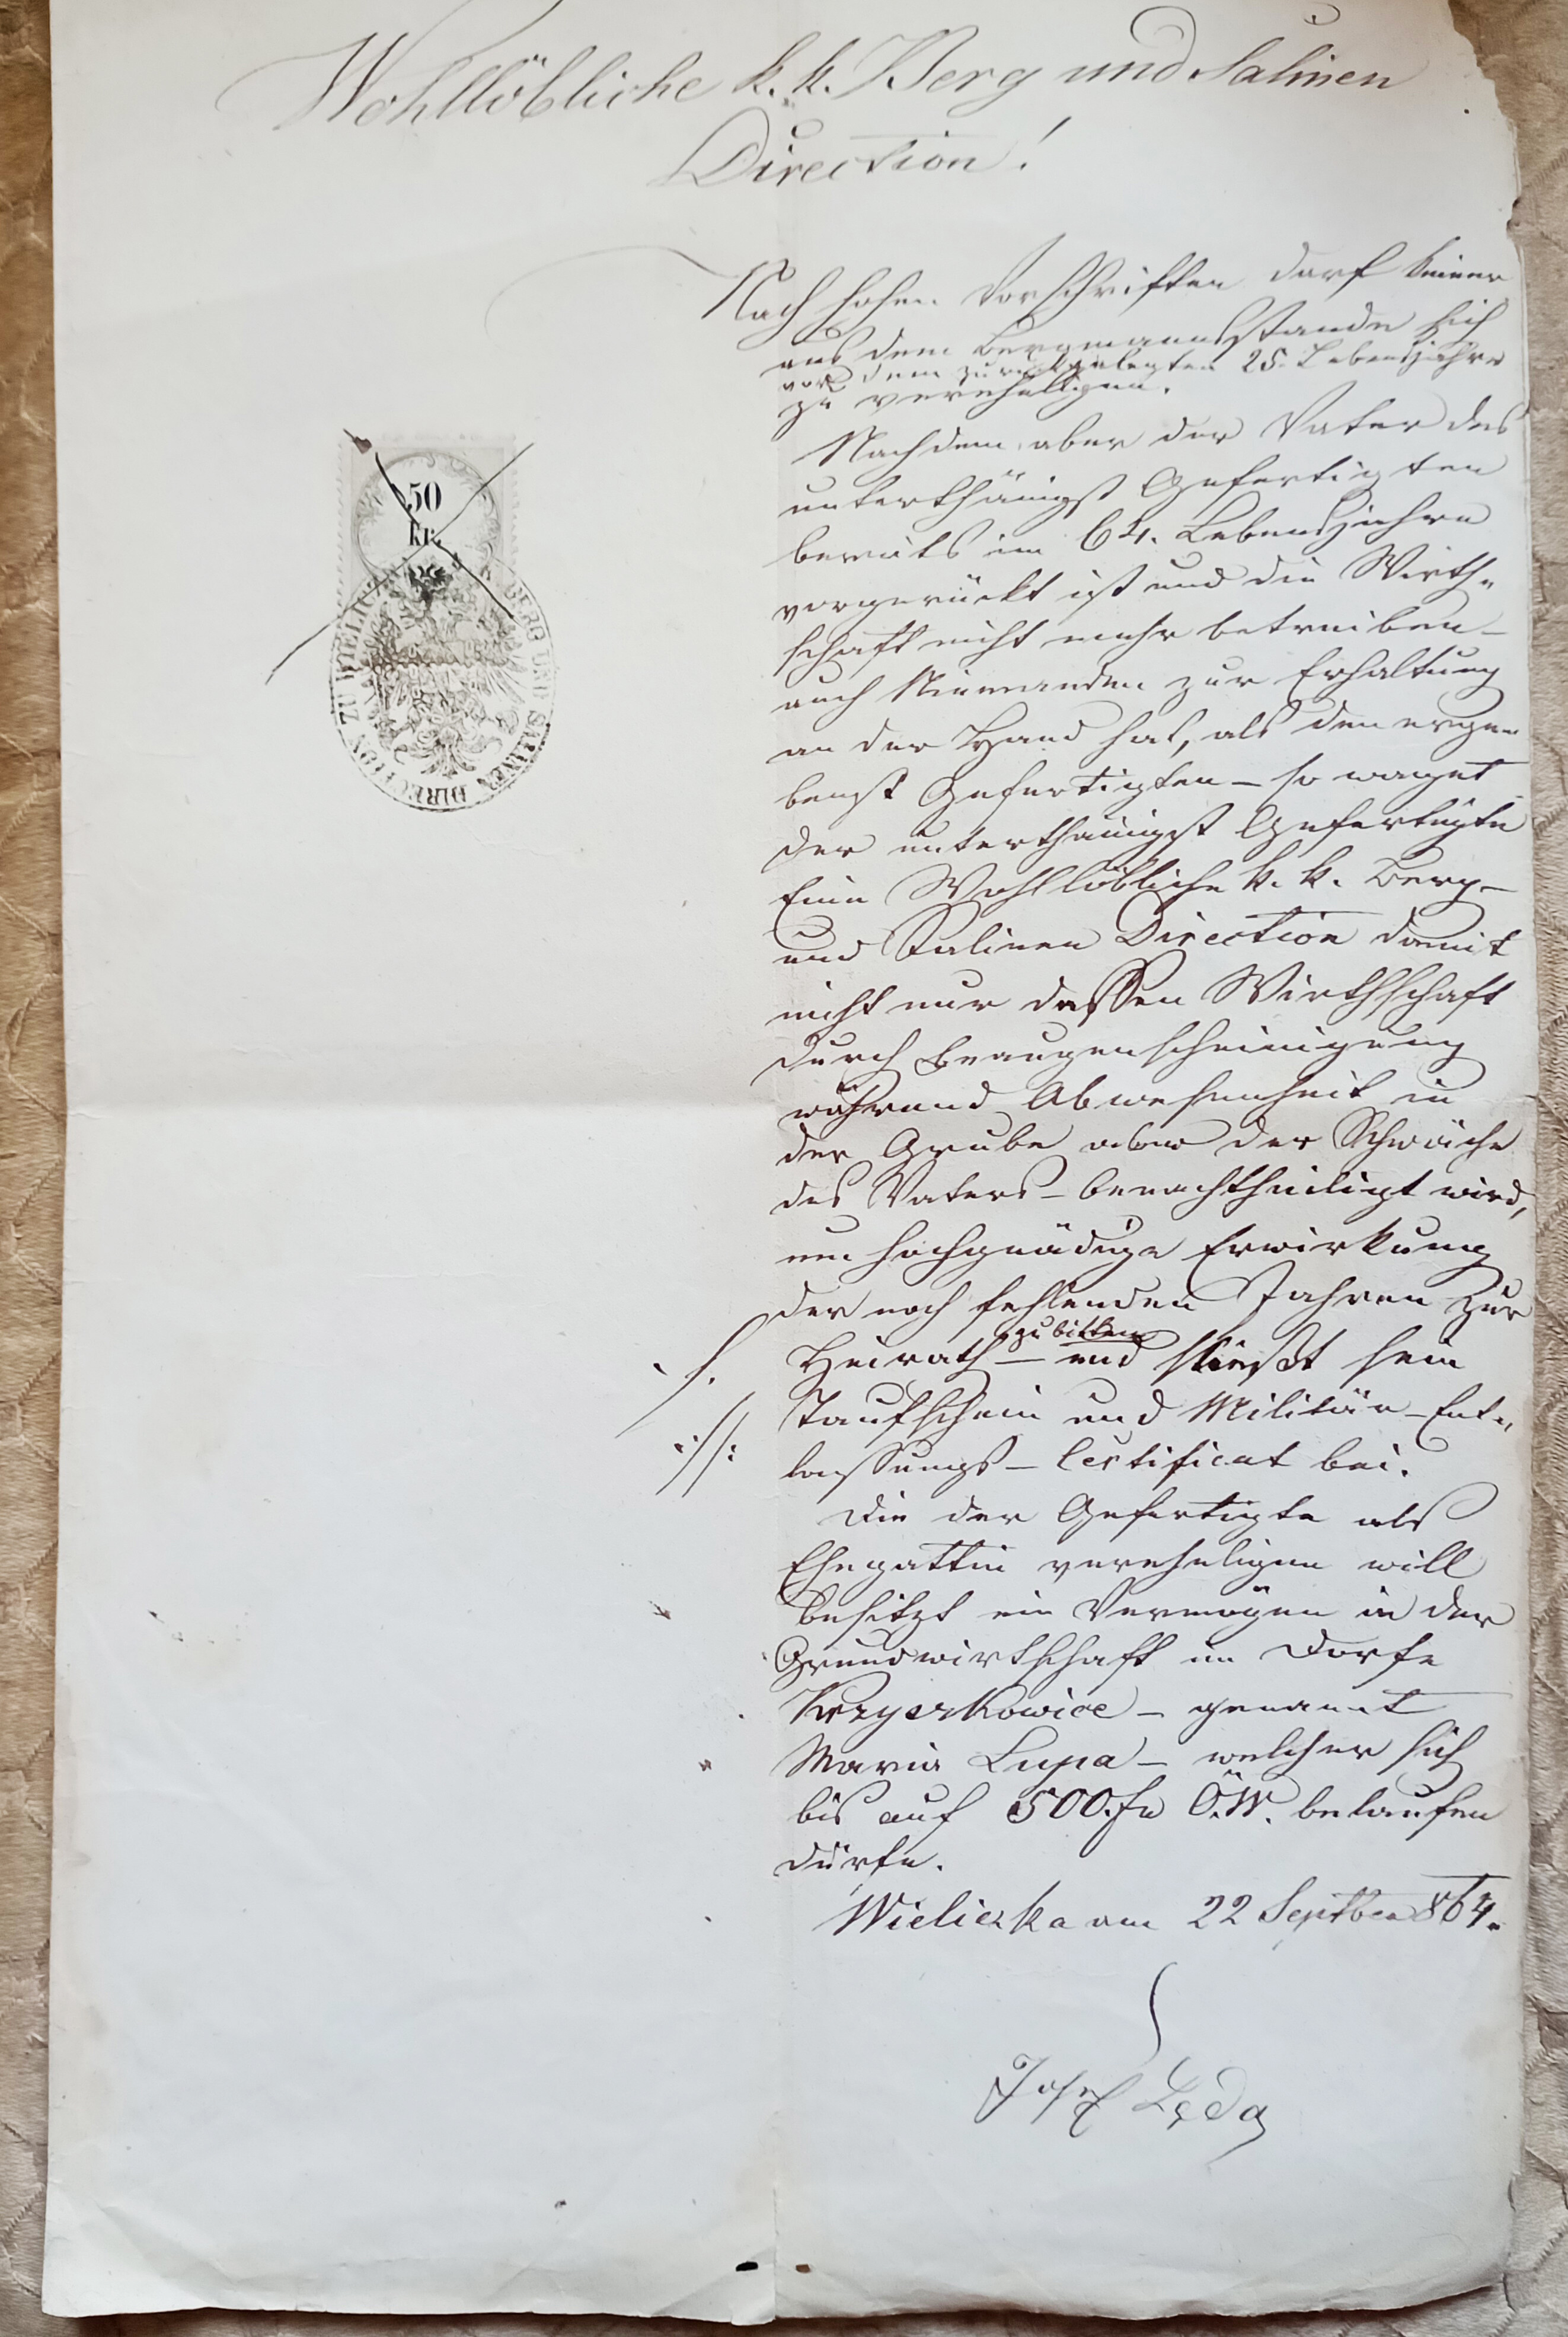 Wohllöbliche k. k. Berg und Salinen
Direction!
Nach hohen Vorschriften darf keiner
aus dem Bergmannsstande sich
vor dem zurückgelegten 25. Lebensjahre
zu verehelligen.
Nachdem aber der Vater des
unterthänigst Gefertigten
bereits im 64. Lebensjahre
vorgerückt ist und die Wirth-
schaft nicht mehr betreiben –
auch Niemanden zur Erhaltung
an der Hand hat, als den erge-
benst Gefertigten – so waget
der unterthänigst Gefertigte
Eine Wohllöbliche k. k. Berg-
und Salinen Direction damit
nicht nur dessen Wirthschaft
durch Beaugenscheinigung
während Abwesenheit in
der Grube oder der Schwäche
des Vaters – benachtheiligt wird,
um hochgnädige Erwirkung
der noch fehlenden Jahren zur
zu bitten
Heirath – und schließt sein
./.
Taufschein und Militär-Ent-
.//:
lassungs-Certificat bei.
Die der Gefertigte als
Ehegattin vereheligen will
besitzt ein Vermögen in der
Grundwirthschaft im Dorfe
Krzyszkowice – genannt
Maria Lupa – welcher sich
bis auf 500. fr Ö.W. belaufen
dürfe.
Wieliczka am 22 Septber 864.
Josef Lęda
50
kr.
K. K. BERG UND SALINEN DIRECTION ZU WIELICZKA